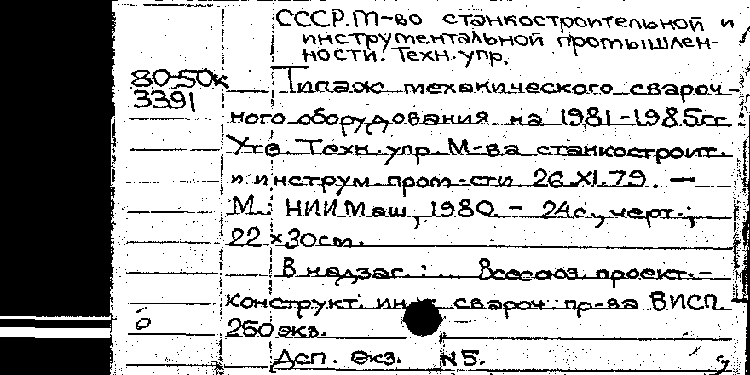 СССР. М-во станкостроительной и
инструментальной промышлен-
ности. Техн. упр.
80-50к Типаж механического свароч-
3391 ного оборудования на 1981-1985гг.
Утв. Техн. упр. М-ва станкостроит.
и инструм. пром-сти 26.XI.79. —
М.: НИИМаш, 1980. - 24с., черт.;
22×30см.
В надзаг.: ... Всесоюз. проект.-
конструкт. ин-т свароч. пр-ва ВИСП.
250 экз.
Дсп. Экз. №5.